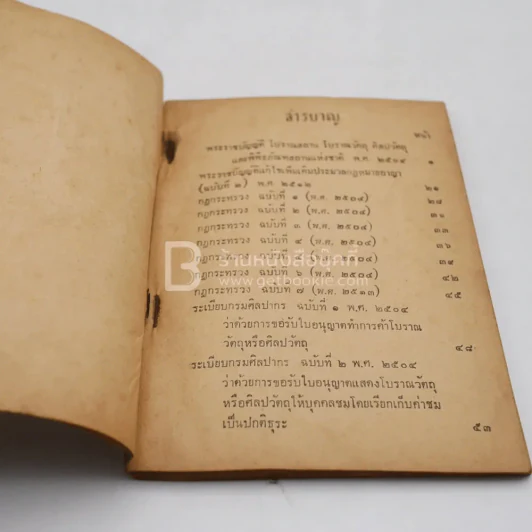 สารบาญ
หน้า
พระราชบัญญัติ โบราณสถาน โบราณวัตถุ ศิลปวัตถุ
และพิพิธภัณฑสถานแห่งชาติ พ.ศ. ๒๕๐๔ ๑
พระราชบัญญัติแก้ไขเพิ่มเติมประมวลกฎหมายอาญา
(ฉบับที่ ๒) พ.ศ. ๒๕๑๒ ๒๑
กฎกระทรวง ฉบับที่ ๑ (พ.ศ. ๒๕๐๔) ๒๘
กฎกระทรวง ฉบับที่ ๒ (พ.ศ. ๒๕๐๔) ๓๐
กฎกระทรวง ฉบับที่ ๓ (พ.ศ. ๒๕๐๔) ๓๓
กฎกระทรวง ฉบับที่ ๔ (พ.ศ. ๒๕๐๔) ๓๖
กฎกระทรวง ฉบับที่ ๕ (พ.ศ. ๒๕๐๔) ๓๙
กฎกระทรวง ฉบับที่ ๖ (พ.ศ. ๒๕๐๔) ๔๒
กฎกระทรวง ฉบับที่ ๗ (พ.ศ. ๒๕๑๓) ๔๕
ระเบียบกรมศิลปากร ฉบับที่ ๑ พ.ศ. ๒๕๐๔
ว่าด้วยการขอรับใบอนุญาตทำการค้าโบราณ
วัตถุหรือศิลปวัตถุ ๔๘
ระเบียบกรมศิลปากร ฉบับที่ ๒ พ.ศ. ๒๕๐๔
ว่าด้วยการขอรับใบอนุญาตแสดงโบราณวัตถุ
หรือศิลปวัตถุให้บุคคลชมโดยเรียกเก็บค่าชม
เป็นปกติธุระ ๕๓
B ร้านหนังสือบิ๊กกี้
www.getbookie.com